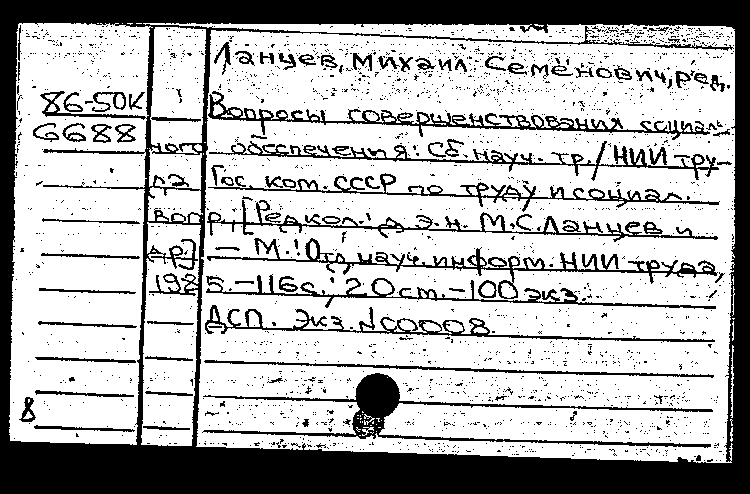 Ланцев, Михаил Семёнович, ред.
86-50К Вопросы совершенствования социаль-
6688 ного обеспечения: Сб. науч. тр./ НИИ тру-
да Гос. ком. СССР по труду и социал.
вопр.; [Редкол.: д. э. н. М.С.Ланцев и
др.] - М.: Отд. науч. информ. НИИ труда,
1985.-116с.; 20 см.-100 экз.
ДСП. Экз. N С0008.
8